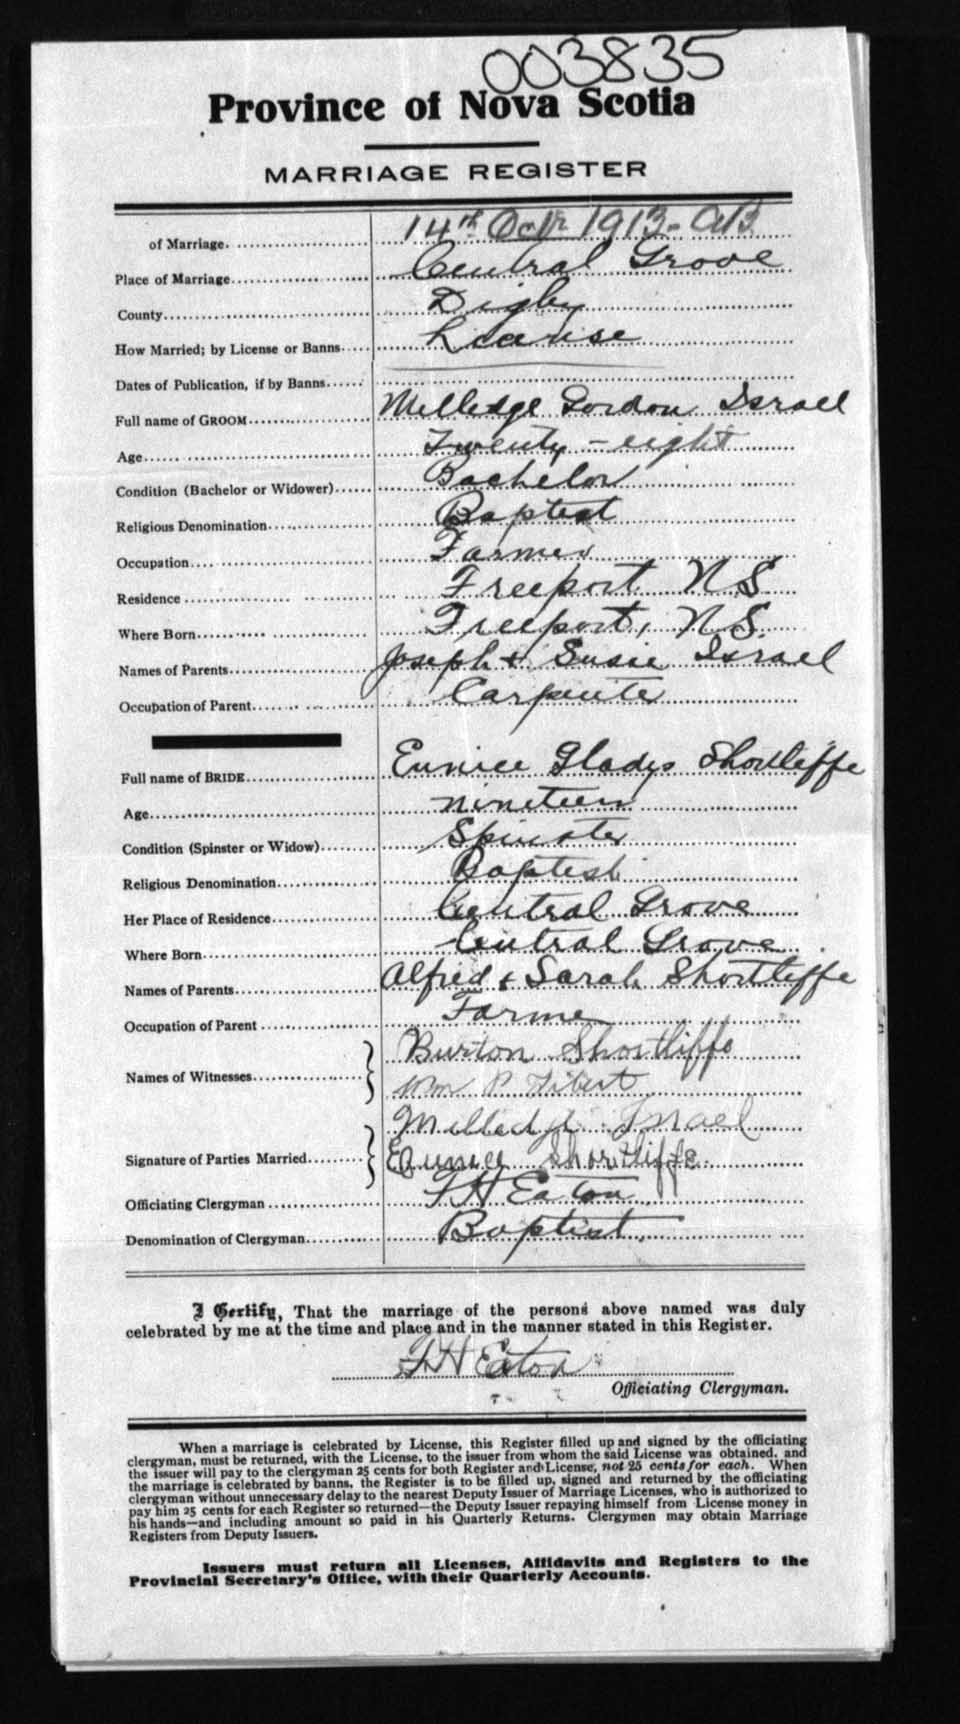 003835
Province of Nova Scotia
MARRIAGE REGISTER
of Marriage 14th Octr 1913
Place of Marriage Central Grove
County Digby
How Married; by License or Banns License
Dates of Publication, if by Banns
Full name of GROOM Milledge Gordon Israel
Age Twenty-eight
Condition (Bachelor or Widower) Bachelor
Religious Denomination Baptist
Occupation Farmer
Residence Freeport N S
Where Born Freeport, N S.
Names of Parents Joseph & Susie Israel
Occupation of Parent Carpenter
Full name of BRIDE Eunice Gladys Shortliffe
Age nineteen
Condition (Spinster or Widow) Spinster
Religious Denomination Baptist
Her Place of Residence Central Grove
Where Born Central Grove
Names of Parents Alfred & Sarah Shortliffe
Occupation of Parent Farmer
Names of Witnesses Burton Shortliffe
Wm P
Signature of Parties Married Milledge Israel
Eunice Shortliffe
Officiating Clergyman H Eaton
Denomination of Clergyman Baptist
I Certify, That the marriage of the persons above named was duly
celebrated by me at the time and place and in the manner stated in this Register.
H Eaton
Officiating Clergyman.
When a marriage is celebrated by License, this Register filled up and signed by the officiating
clergyman, must be returned, with the License, to the issuer from whom the said License was obtained, and
the issuer will pay to the clergyman 25 cents for both Register and License, not 25 cents for each. When
the marriage is celebrated by banns, the Register is to be filled up, signed and returned by the officiating
clergyman without unnecessary delay to the nearest Deputy Issuer of Marriage Licenses, who is authorized to
pay him 25 cents for each Register so returned—the Deputy Issuer repaying himself from License money in
his hands—and including amount so paid in his Quarterly Returns. Clergymen may obtain Marriage
Registers from Deputy Issuers.
Issuers must return all Licenses, Affidavits and Registers to the
Provincial Secretary's Office, with their Quarterly Accounts.